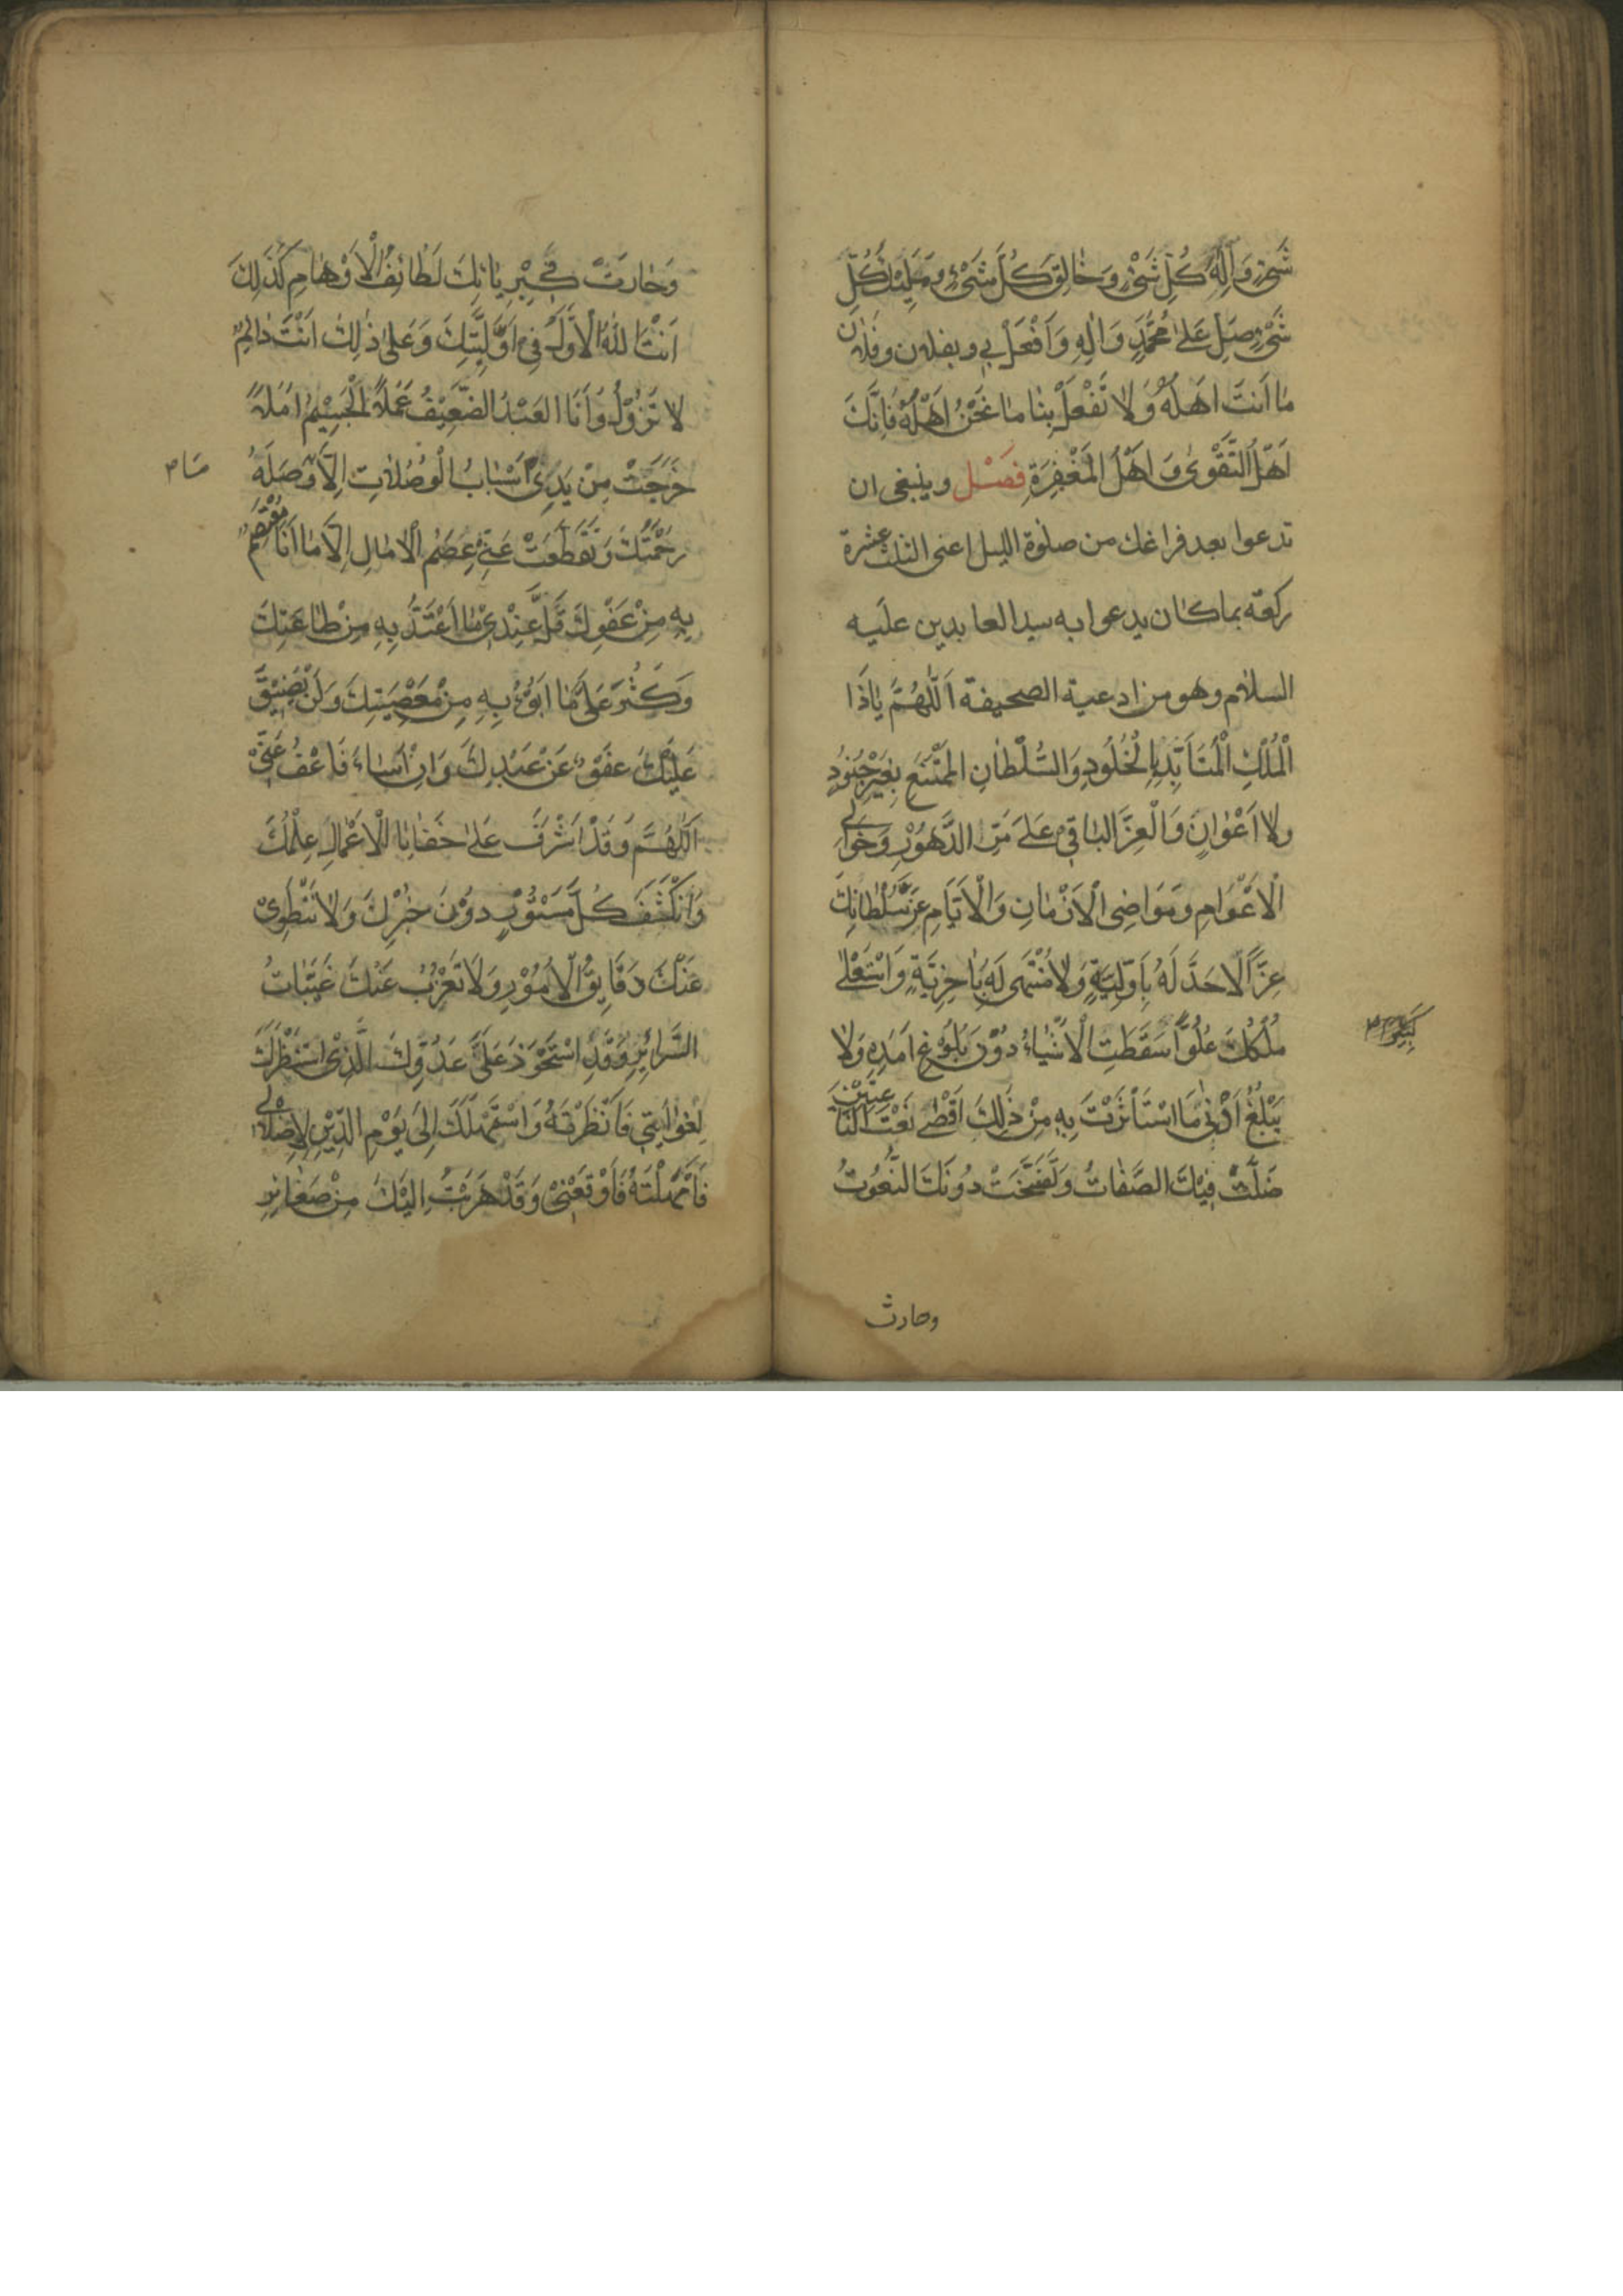 شَيْءٍ وَاِلٰهَ كُلِّ شَيْءٍ وَخَالِقَ كُلِّ شَيْءٍ وَمَلِيْكَ كُلِّ
شَيْءٍ صَلِّ عَلٰى مُحَمَّدٍ وَاٰلِهِ وَافْعَلْ بِي وبفلان وفلان
مَا اَنْتَ اَهْلُهُ وَلَا تَفْعَلْ بِنَا مَا نَحْنُ اَهْلُهُ فَاِنَّكَ
اَهْلُ التَّقْوٰى وَاَهْلُ الْمَغْفِرَةِ فصل وينبغى ان
تدعوا بعد فراغك من صلوة الليل اعنى الثلث عشرة
ركعة بما كان يدعوا به سيد العابدين عليه
السلام وهو من ادعية الصحيفة اَللّٰهُمَّ يَا ذَا
الْمُلْكِ الْمُتَأَبِّدِ بِالْخُلُودِ وَالسُّلْطَانِ الْمُمْتَنِعِ بِغَيْرِ جُنُودٍ
وَلَا اَعْوَانٍ وَالْعِزِّ الْبَاقِيْ عَلٰى مَرِّ الدُّهُوْرِ وَخَوَالِي
الْاَعْوَامِ وَمَوَاضِى الْاَزْمَانِ وَالْاَيَّامِ عَزَّ سُلْطَانُكَ
عِزًّا لَا حَدَّ لَهُ بِاَوَّلِيَّةٍ وَلَا مُنْتَهٰى لَهُ بِاٰخِرِيَّةٍ وَاسْتَعْلٰى
مُلْكُكَ عُلُوًّا سَقَطَتِ الْاَشْيَاءُ دُوْنَ بُلُوْغِ اَمَدِهِ وَلَا
يَبْلُغُ اَدْنٰى مَا اسْتَأْثَرْتَ بِهِ مِنْ ذٰلِكَ اَقْصٰى نَعْتِ النَّاعِتِيْنَ
ضَلَّتْ فِيْكَ الصِّفَاتُ وَتَفَسَّخَتْ دُونَكَ النُّعُوْتُ
وحارت
وَحَارَتْ فِي كِبْرِيَائِكَ لَطَائِفُ الْاَوْهَامِ كَذٰلِكَ
اَنْتَ اللّٰهُ الْاَوَّلُ فِي اَوَّلِيَّتِكَ وَعَلٰى ذٰلِكَ اَنْتَ دَائِمٌ
لَا تَزُوْلُ وَاَنَا الْعَبْدُ الضَّعِيْفُ عَمَلًا الْجَسِيْمُ اَمَلًا
خَرَجَتْ مِنْ يَدِيْ اَسْبَابُ الْوُصُلَاتِ اِلَّا مَا وَصَلَهُ
رَحْمَتُكَ وَتَقَطَّعَتْ عَنِّيْ عِصَمُ الْاٰمَالِ اِلَّا مَا اَنَا مُعْتَصِمٌ
بِهِ مِنْ عَفْوِكَ قَلَّ عِنْدِيْ مَا اَعْتَدُّ بِهِ مِنْ طَاعَتِكَ
وَكَثُرَ عَلَيَّ مَا اَبُوْءُ بِهِ مِنْ مَعْصِيَتِكَ وَلَنْ يَضِيْقَ
عَلَيْكَ عَفْوٌ عَنْ عَبْدِكَ وَاِنْ اَسَاءَ فَاعْفُ عَنِّيْ
اَللّٰهُمَّ وَقَدْ اَشْرَفَ عَلٰى خَفَايَا الْاَعْمَالِ عِلْمُكَ
وَانْكَشَفَ كُلُّ مَسْتُوْرٍ دُوْنَ خُبْرِكَ وَلَا تَنْطَوِيْ
عَنْكَ دَقَايِقُ الْاُمُوْرِ وَلَا تَعْزُبُ عَنْكَ غَيِّبَاتُ
السَّرَائِرِ وَقَدِ اسْتَحْوَذَ عَلَيَّ عَدُوُّكَ الَّذِيْ اسْتَنْظَرَكَ
لِغَوَايَتِيْ فَاَنْظَرْتَهُ وَاسْتَمْهَلَكَ اِلٰى يَوْمِ الدِّيْنِ لِاِضْلَالِي
فَاَمْهَلْتَهُ فَاَوْقَعَنِيْ وَقَدْ هَرَبْتُ اِلَيْكَ مِنْ صَغَائِرِ